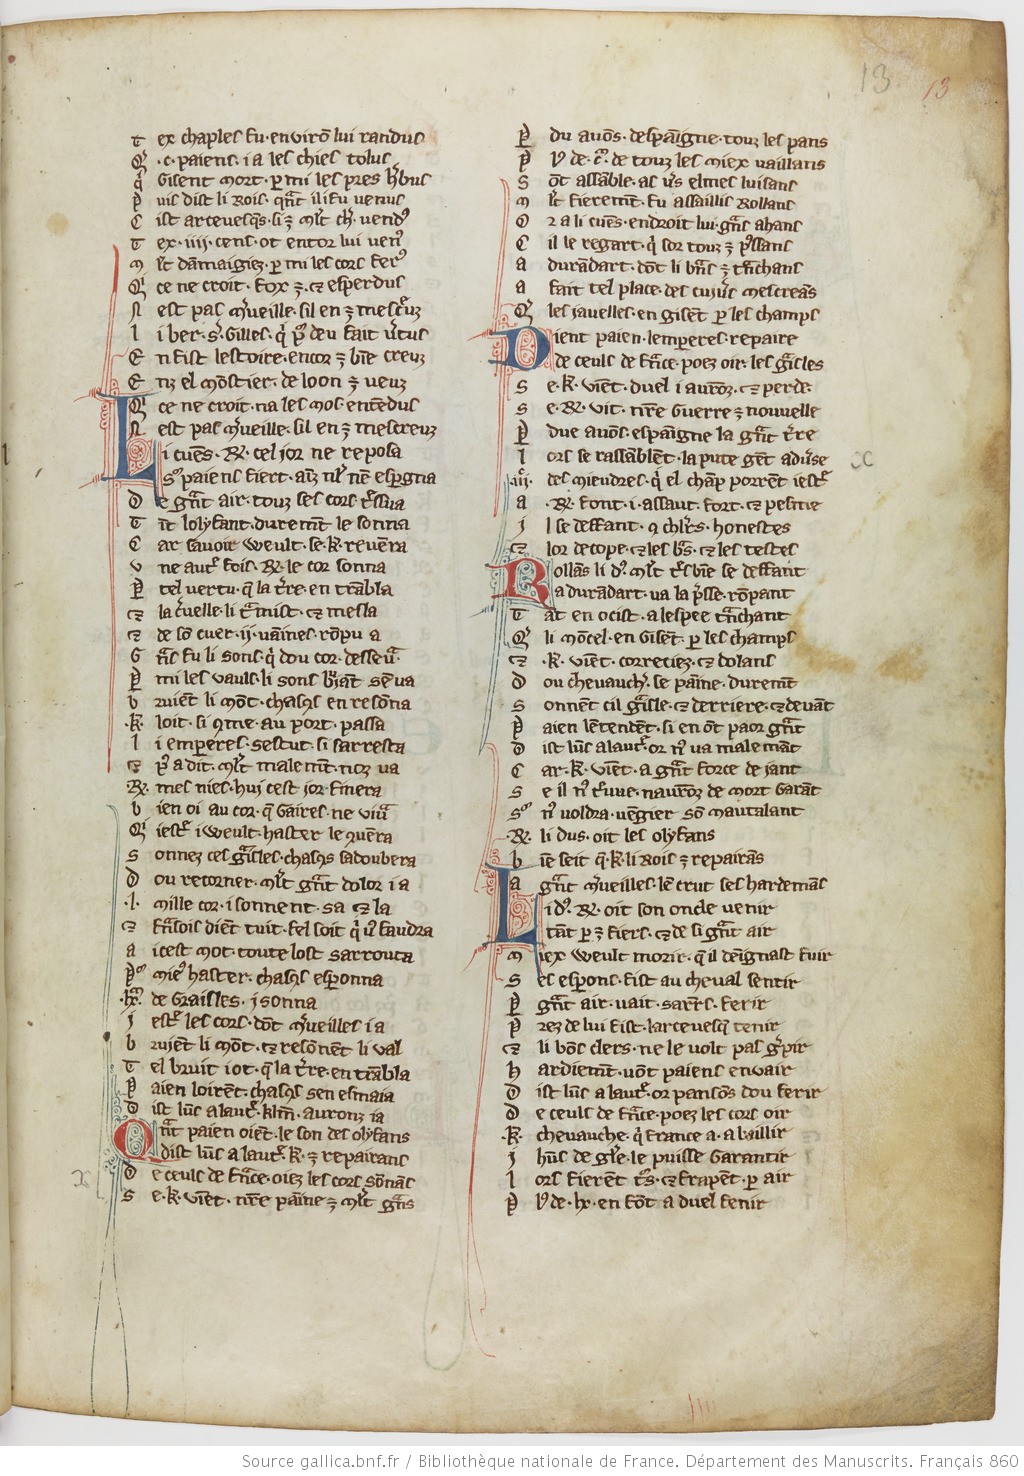 13 13
Tex chaples fu · enviro lui randus
Q̃ · c · paiens · i a les chies tolus
q̃ Gisent mort · p mi les pres h̾bus
Puis dist li Rois · qñt il i fu venus
Cist arcevesq̃s · si ⁊ ml̃t ch̾ · vendꝰ
Tex · iiii · cens · ot entor lui ven̾
Ml̃t dãmaigiez · p mi les cors fer̾
Q̃ ce ne croit · fox ⁊ · ⁊ esperdus
Nest pas m̾veille · sil en ⁊ mescr̾uz
Li ber · s̾ · Gilles · q̃ p̾ deu fait v̾tus
En fist lestoire · encor ⁊ bñe creuz
Enz el mõstier · de loon ⁊ veuz
Q̃ ce ne croit · na les mos entẽdus
Nest pas m̾veille · sil en ⁊ mescreuz
Li cuẽs · R̃ · cel jor ne reposa
Sꝰ paiens fiert · ainz nul nẽ espgna
De gr̃nt air · touz ses cors tr̃ssua
Tiẽt lolyfant · duremẽt le sonna
Car savoir weult · se · k̃ revẽra
Une autre fois · R̃ · le cor sonna
Par tel vertu · q̃ la t̃re · en trẽbla
⁊ la c̾velle · li tr̃mist · ⁊ mesla
⁊ de sõ cuer · ii · vainnes · rõpu a
Gr̃ns fu li sons · q̃ dou cor · desseu̾a
Par mi les vauls · li sons br̃iant sen va
Bruiẽt li mõt · chasc̃s en resõna
· k̃ · loit · si q̃me · au port · passa
Li emperes · sestut · si sarresta
⁊ p̃s a dit · ml̃t malemẽt · noz va
R̃ · mes nies · hui cest jor finera
Bien oi au cor · q̃ Gaires · ne viu̾a
Q̃ iest̃ · i weult · haster le quera
Sonnez ces gr̃isles · chasc̃s sadoubera
Dou retorner · ml̃t gr̃nt dolor i a
· l · mille cor · i sonnent · sa ⁊ la
⁊ frãsois dient tuit · fel soit q̃ v̾ faudra
A icest mot · toute lost sarrouta
Pꝰ mieꝰ haster · chasc̃s esponna
de Graisles · i sonna
I est̃ les cors · dõt m̾veilles i a
Bruiẽt li mõt · ⁊ resonẽt li val
Tel bruit i ot · q̃ la t̃re · en trẽbla
Paien loirẽt · chasc̃s sen esmaia
Dist luns a laut̃ · k̃lm̃ · aurons ia
Qñt paien oiẽt · le son des olyfans
Dist luns a laut̃ · k̃ · ⁊ repairans
De ceuls de frãce · oiez les cors sonãs
Se · k̃ · viẽt · nr̃e paine ⁊ ml̃t gr̃ns
Pdu auõs · despaigne · touz les pans
de touz les miex vaillans
Sõt assãble · as v̾s elmes luisans
Ml̃t fieremẽt · fu assaillis Rollans
Or a li cuẽs · endroit lui · gr̃ns ahans
Cil le regart · q̃ sor touz ⁊ p̃ssans
A durãdart · dõt li br̃ns ⁊ tr̃nchans
A fait tel place · des cuiv̾s mescreãs
Q̃ les javelles · en gisẽt p les champs
Dient paien · lemperes · repaire
de ceuls de frãce · poez oir · les gr̃isles
Se · k̃ · viẽt · duel i aurõz · ⁊ perde
Se · R̃ · vit · nr̃e Guerre ⁊ nouvelle
Pdue auõs · espaigne la gr̃nt t̃re
Lors se rassãblẽt · la pute gẽt adu̾se
· iiii · des mieudres · q̃ el chãp porrẽt iest̃
A · R̃ · font · i · assaut · fort · ⁊ pesme
Il se deffant · q̃ chlr̃s · honestes
⁊ lor decope · ⁊ les br̃s · ⁊ les testes
Rollans li dꝰ · ml̃t tr̃s bñe se deffant
A durãdart · va la p̃sse · rõpant
Tãt en ocist · a lespee tr̃nchant
Q̃ li mõcel · en Gisẽt · p les champs
⁊ · k̃ · viẽt · correciez · ⁊ dolans
Dou chevauch̾ · se painne · duremẽt
Sonnent cil gr̃isle · ⁊ derriere · ⁊ devãt
Paien lẽtendẽt · si en õt paor gr̃nt
Dist luns a laut̃ · or nꝰ va malemẽt
Car · k̃ · viẽt · a gr̃nt force de jant
Se il nꝰ tr̾uve · naurõz de mort Garãt
Sꝰ nꝰ voldra · vẽgier sõ mautalant
R̃ · li dus · oit les olyfans
Biẽ seit q̃ · k̃ · li Rois ⁊ repairãs
A gr̃nt m̾veilles · lẽ crut ses hardemãs
Li dꝰ · R̃ · oit son oncle venir
Tãt p ⁊ fiers · ⁊ de si gr̃nt air
Miex weult morir · q̃ il deignast fuir
Ses espons · fist au cheval sentir
P gr̃nt air · vait · sarr̃s · ferir
Prez de lui fist · larcevesq̃ tenir
⁊ li bõs clers · ne le volt pas g̾pir
Hardiemẽt · võt paiens envair
Dist luns a laut̃ · or pansõs dou ferir
De ceuls de frãce · poez les cors oir
· k̃ · chevauche · q̃ france a · a baillir
Jhũs de gl̃e · le puisse Garantir
Lors fierẽt tr̃s · ⁊ frapẽt · p air
en fõt a duel fenir
Source gallica.bnf.fr / Bibliothèque nationale de France. Département des Manuscrits. Français 860